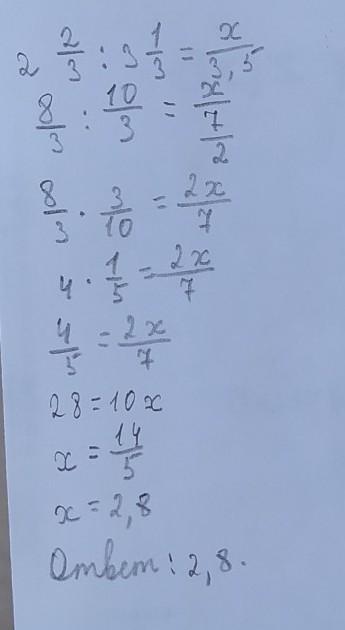 2 2/3 : 3 1/3 = x/3,5
8/3 : 10/3 = x/(7/2)
8/3 · 3/10 = 2x/7
4 · 1/5 = 2x/7
4/5 = 2x/7
28 = 10x
x = 14/5
x = 2,8
Ответ: 2,8.